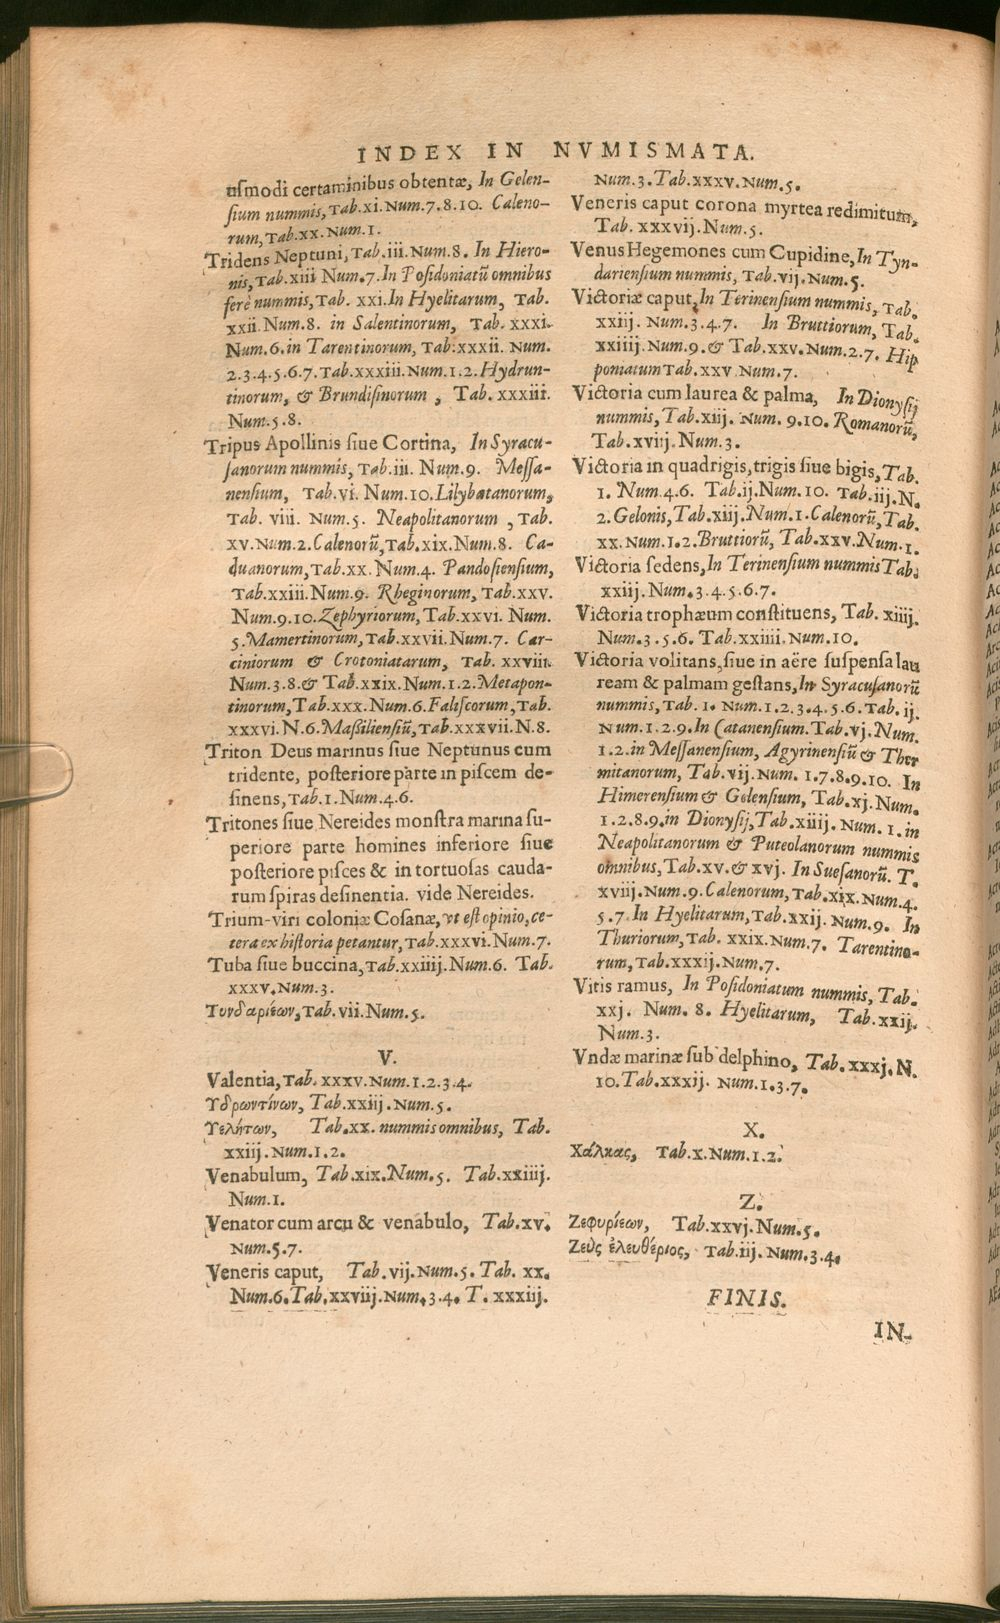 INDEX IN NVMISMATA.
usmodi certaminibus obtentæ, In Gelen-
sium nummis, Tab.xi.Num.7.8.10. Caleno-
rum, Tab.xx.Num.1.
Tridens Neptuni, Tab.iii.Num.8. In Hiero-
nis, Tab.xiii Num.7.In Posidoniatũ omnibus
ferè nummis, Tab. xxi.In Hyelitarum, Tab.
xxii.Num.8. in Salentinorum, Tab. xxxi.
Num.6.in Tarentinorum, Tab.xxxii. Num.
2.3.4.5.6.7.Tab.xxxiii.Num.1.2.Hydrun-
tinorum, & Brundisinorum, Tab. xxxiii.
Num.5.8.
Tripus Apollinis siue Cortina, In Syracu-
sanorum nummis, Tab.iii. Num.9. Messa-
nensium, Tab.vi. Num.10.Lilybatanorum,
Tab. viii. Num.5. Neapolitanorum, Tab.
xv.Num.2.Calenorũ,Tab.xix.Num.8. Ca-
duanorum,Tab.xx. Num.4. Pandosiensium,
Tab.xxiii.Num.9. Rheginorum, Tab.xxv.
Num.9.10.Zephyriorum, Tab.xxvi. Num.
5.Mamertinorum, Tab.xxvii.Num.7. Car-
ciniorum & Crotoniatarum, Tab. xxviii.
Num.3.8.& Tab.xxix.Num.1.2.Metapon-
tinorum, Tab.xxx.Num.6.Faliscorum, Tab.
xxxvi.N.6.Massiliensiũ, Tab.xxxvii.N.8.
Triton Deus marinus siue Neptunus cum
tridente, posteriore parte in piscem de-
sinens, Tab.1.Num.4.6.
Tritones siue Nereides monstra marina su-
periore parte homines inferiore siue
posteriore pisces & in tortuosas cauda-
rum spiras desinentia. vide Nereides.
Trium-viri coloniæ Cosanæ, vt est opinio, ce-
tera ex historia petantur, Tab.xxxvi.Num.7.
Tuba siue buccina, Tab.xxiiij.Num.6. Tab.
xxxv.Num.3.
Τυνδαριέων, Tab.vii.Num.5.
V.
Valentia, Tab. xxxv.Num.1.2.3.4.
Υδρωντίνων, Tab.xxiij.Num.5.
Υελήτων, Tab.xx. nummis omnibus, Tab.
xxiij.Num.1.2.
Venabulum, Tab.xix.Num.5. Tab.xxiiij.
Num.1.
Venator cum arcu & venabulo, Tab.xv.
Num.5.7.
Veneris caput, Tab.vij.Num.5. Tab. xx.
Num.6.Tab.xxviij.Num.3.4. T. xxxiij.
Num.3.Tab.xxxv.Num.5.
Veneris caput corona myrtea redimitum,
Tab. xxxvij.Num.5.
Venus Hegemones cum Cupidine, In Tyn-
dariensium nummis, Tab.vij.Num.5.
Victoriæ caput, In Terinensium nummis, Tab.
xxiij. Num.3.4.7. In Bruttiorum, Tab.
xxiiij.Num.9.& Tab.xxv.Num.2.7. Hip
poniatum Tab.xxv Num.7.
Victoria cum laurea & palma, In Dionysij
nummis, Tab.xiij. Num. 9.10. Romanorũ,
Tab.xviij.Num.3.
Victoria in quadrigis, trigis siue bigis, Tab.
1. Num.4.6. Tab.ij.Num.10. Tab.iij.N.
2.Gelonis, Tab.xiij.Num.1.Calenorũ, Tab.
xx.Num.1.2.Bruttiorũ, Tab.xxv.Num.1.
Victoria sedens, In Terinensium nummis Tab.
xxiij. Num.3.4.5.6.7.
Victoria trophæum constituens, Tab. xiiij.
Num.3.5.6. Tab.xxiiii.Num.10.
Victoria volitans, siue in aëre suspensa lau
ream & palmam gestans, In Syracusanorũ
nummis, Tab. 1. Num.1.2.3.4.5.6.Tab.ij.
Num.1.2.9.In Catanensium.Tab.vj.Num.
1.2.in Messanensium, Agyrinensiũ & Ther
mitanorum, Tab.vij.Num. 1.7.8.9.10. In
Himerensium & Gelensium, Tab.xj.Num.
1.2.8.9.in Dionysij, Tab.xiiij. Num.1.in
Neapolitanorum & Puteolanorum nummis
omnibus, Tab.xv.& xvj. In Suesanorũ. T.
xviij.Num.9.Calenorum, Tab.xix.Num.4.
5.7.In Hyelitarum, Tab.xxij.Num.9. In
Thuriorum, Tab. xxix.Num.7. Tarentino-
rum, Tab.xxxij.Num.7.
Vitis ramus, In Posidoniatum nummis, Tab.
xxj. Num. 8. Hyelitarum, Tab.xxij.
Num.3.
Vndæ marinæ sub delphino, Tab.xxxj.N.
10.Tab.xxxij. Num.1.3.7.
X.
Χάλκας, Tab.x.Num.1.2.
Z.
Ζεφυρίεων, Tab.xxvj.Num.5.
Ζεὺς ἐλευθέριος, Tab.iij.Num.3.4.
FINIS.
IN-